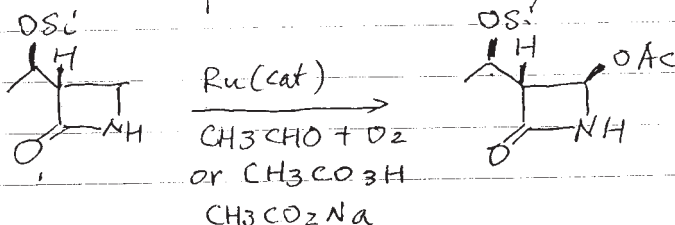 OSi
H
NH
O
Ru(cat)
CH3CHO + O2
or CH3CO3H
CH3CO2Na
OSi
H
OAc
NH
O